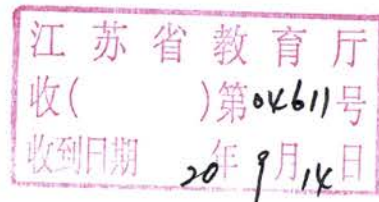 江苏省教育厅
收( )第04611号
收到日期 20年9月14日